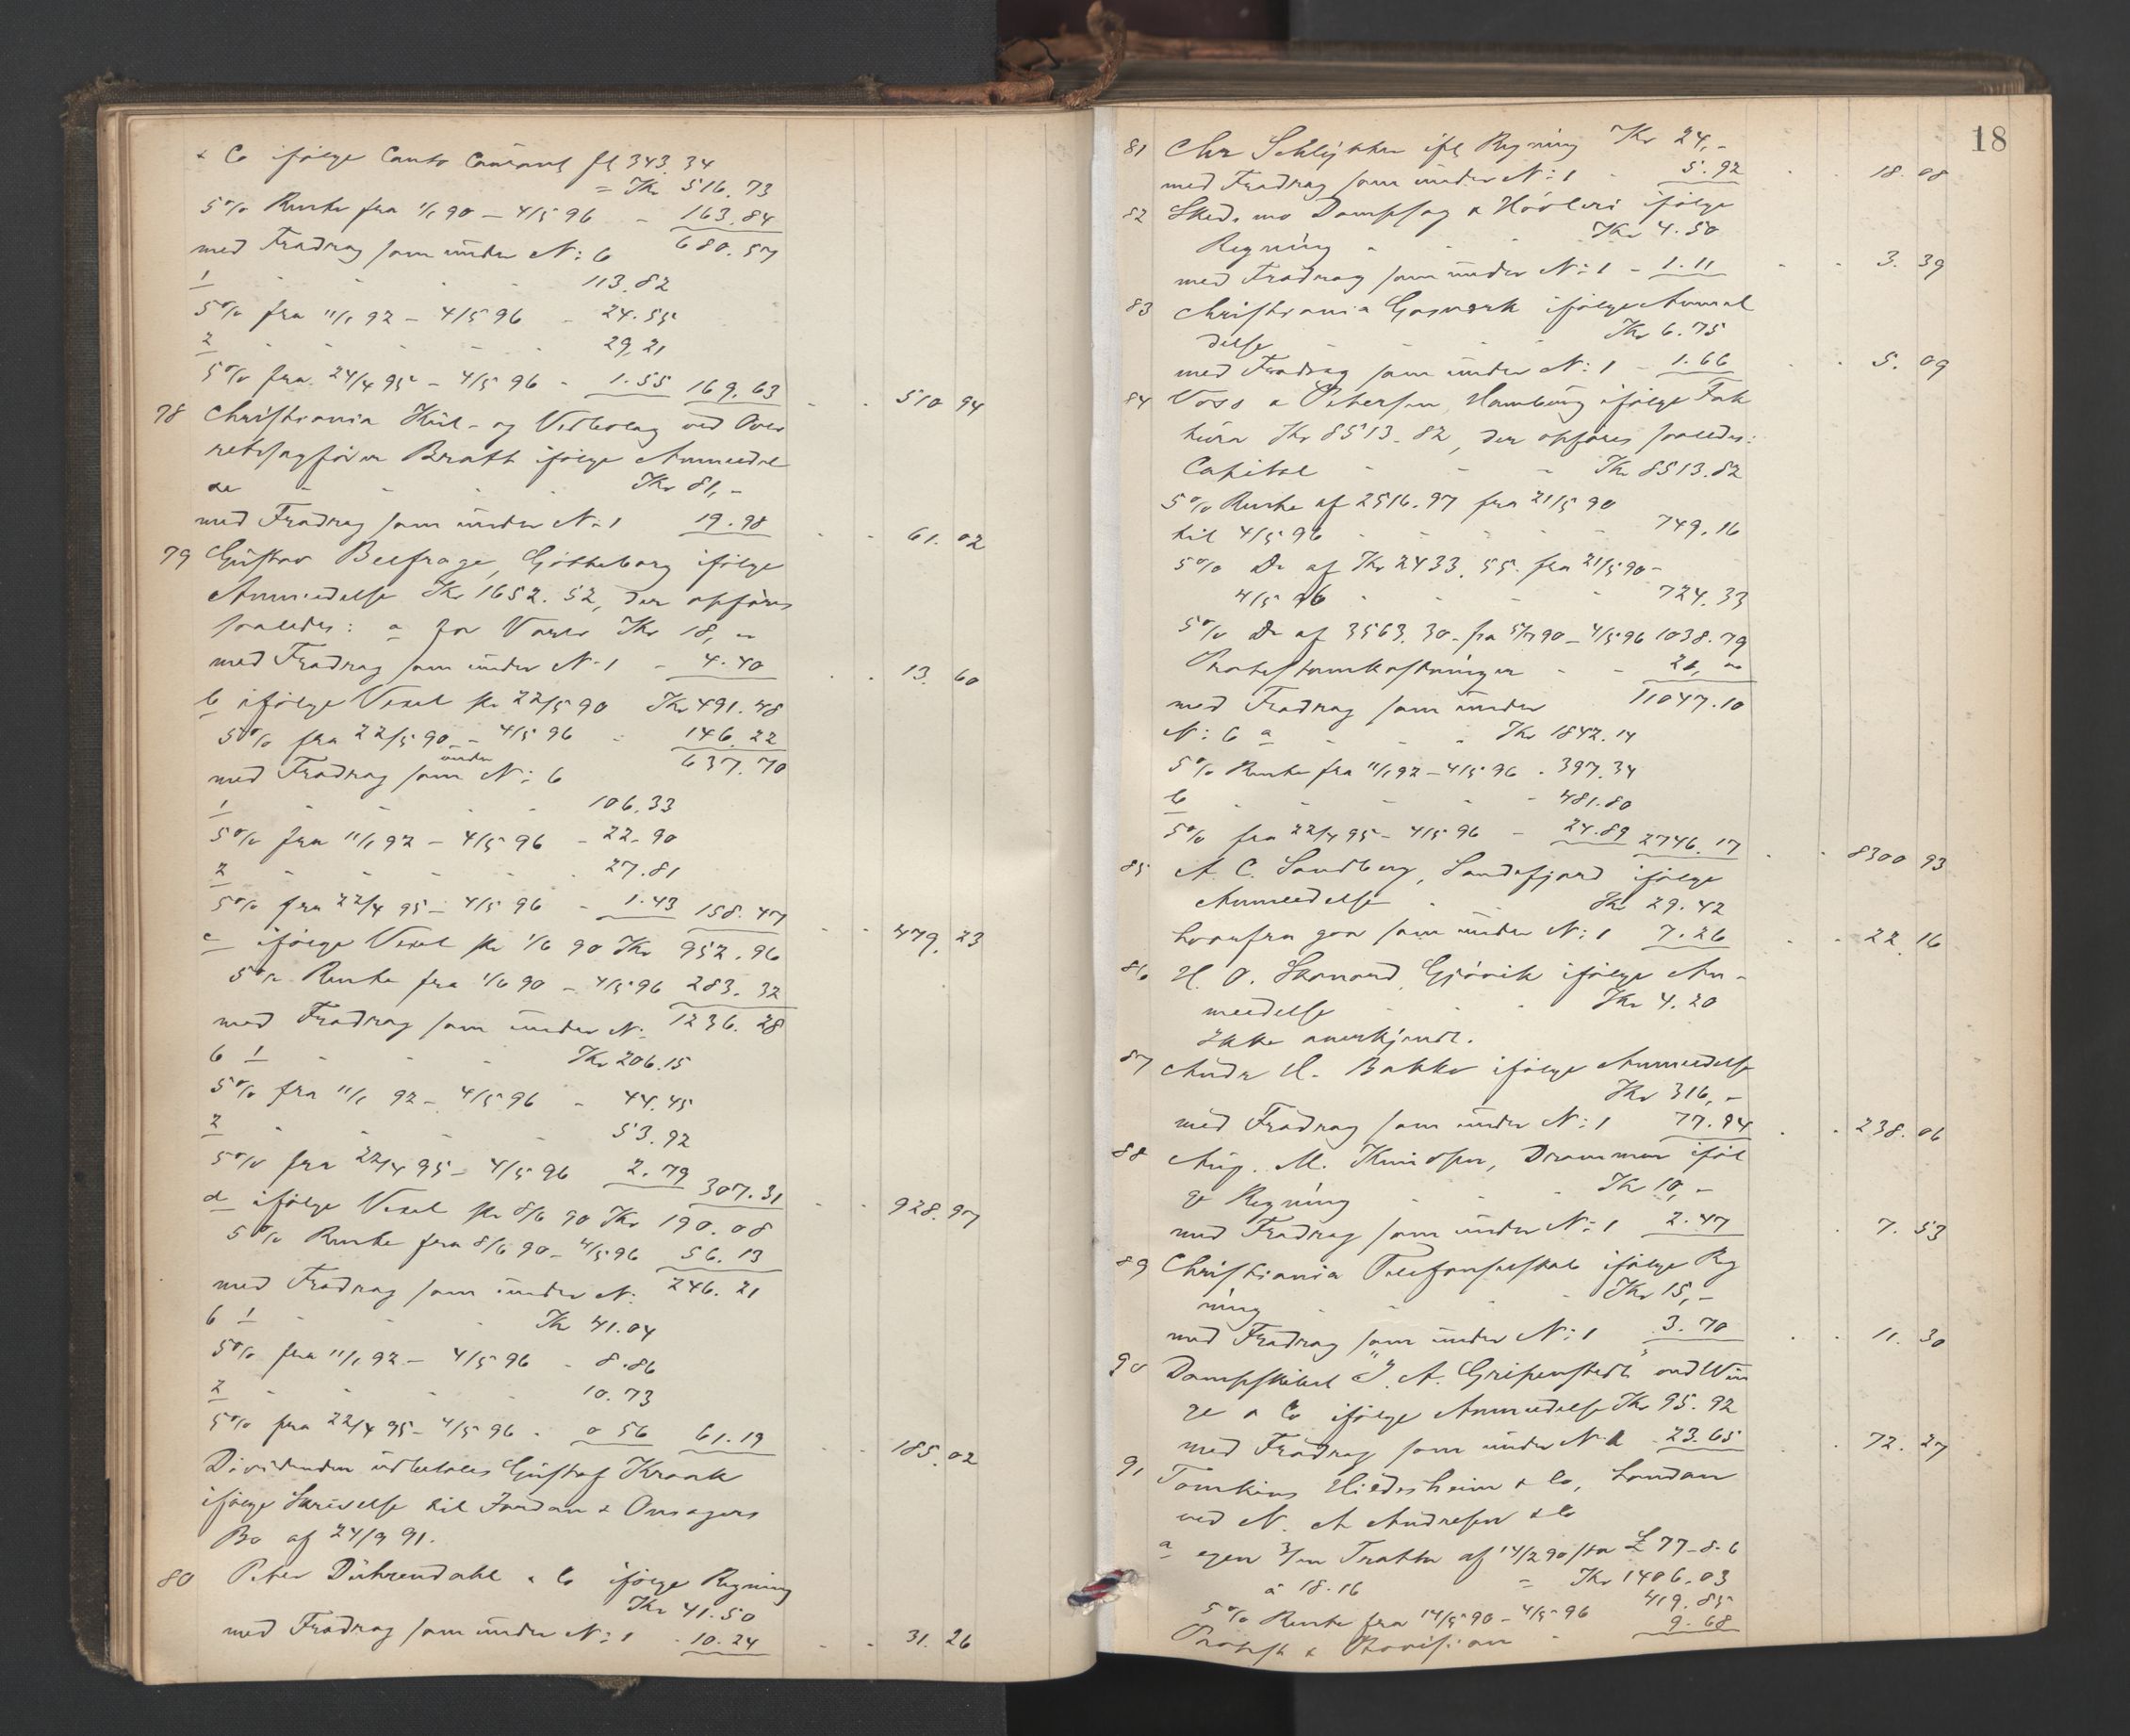 & Co ifølge Conto Courant fl 343.34
= Kr 516.73
5% Rente fra 1/1 90 – 4/5 96 – 163.84
med Fradrag som under N: 6 680.57
1 - - - - 113.82
5% fra 11/1 92 – 4/5 96 - 24.55
2 - - - - 29,21
5% fra 24/4 95 – 4/5 96 - 1.55 169.63 - - 510 94
78 Christiania Kul- og Vedbolag ved Over
retssagfører Bratt ifølge Anmeldel
se - - - Kr 81,-
med Fradrag som under N: 1 19.98 - - 61.02
79 Gustav Belfrage, Gøtheborg ifølge
Anmeldelse Kr 1652.52, der opføres
saaledes: a for Varer Kr 18, -
med Fradrag som under N: 1 - 4.40 - - 13.60
b ifølge Vexel pr 22/5 90 Kr 491.48
5% fra 22/5 90 – 4/5 96 - 146.22
med Fradrag som under N: 6 637.70
1 - - - - 106.33
5% fra 11/1 92 – 4/5 96 - 22.90
2 - - - - 27.81
5% fra 22/4 95 – 4/5 96 - 1.43 158.47 - - 479.23
c ifølge Vexel pr 1/6 90 Kr 952.96
5% Rente fra 1/6 90 – 4/5 96 283.32
med Fradrag som under N: 1236.28
6 1 - - - Kr 206.15
5% fra 11/1 92 – 4/5 96 - 44.45
2 - - - - 53.92
5% fra 22/4 95 – 4/5 96 2.79 307.31 - - 928.97
d ifølge Vexel pr 8/6 90 Kr 190.08
5% Rente fra 8/6 90 – 4/5 96 56.13
med Fradrag som under N: 246.21
6 1 - - - Kr 41.04
5% fra 11/1 92 – 4/5 96 - 8.86
2 - - - - 10.73
5% fra 22/4 95 – 4/5 96 - 0 56 61.19 - - 185.02
Dividenden udbetales Gustaf Kraak
ifølge Skrivelse til Jordan & Onsagers
Bo af 24/9 91.
80 Peter Dührendahl & Co ifølge Regning
Kr 41.50
med Fradrag som under N: 1 - 10.24 - - 31.26
18
81 Chr Schlytter ifl Regning Kr 24,-
med Fradrag som under N: 1 - 5.92 - - 18.08
82 Skedsmo Dampsag & Høvleri ifølge
Regning - - - Kr 4.50
med Fradrag som under N: 1 - 1.11 - - 3.39
83 Christiania Gasværk ifølge Anmel
delse - - - Kr 6.75
med Fradrag som under N: 1 - 1.66 - - 5.09
84 Voss & Petersen, Hamburg ifølge Fak
tura Kr 8513.82, der opføres saaledes:
Capital - - - Kr 8513.82
5% Rente af 2516.97 fra 21/5 90
til 4/5 96 - - - - 749.16
5% Do af Kr 2433.55 fra 21/5 90 –
4/5 96 - - - - 724.33
5% Do af 3563.30 fra 5/7 90 – 4/5 96 1038.79
Protestomkostninger - - 21, -
med Fradrag som under 11047.10
N: 6 a - - - Kr 1842.14
5% Rente fra 11/1 92 – 4/5 96 - 397.34
b - - - - 481.80
5% fra 22/4 95 – 4/5 96 - 24.89 2746.17 - - 8300 93
85 A. C. Sandberg, Sandefjord ifølge
Anmeldelse - - Kr 29.42
hvorfra gaar som under N: 1 7.26 - - 22.16
86 H. O. Gjøvik ifølge An-
meldelse - - - Kr 4.20
Ikke anerkjendt.
87 Andr H. Bakke ifølge Anmeldelse
Kr 316,-
med Fradrag som under N: 1 77.94 - - 238.06
88 Aug. M. Knudsen, Drammen iføl
ge Regning - - - Kr 10,-
med Fradrag som under N: 1 2.47 - 7.53
89 Christiania Telefonselskab ifølge Reg
ning - - - - Kr 15,-
med Fradrag som under N: 1 3.70 - - 11.30
90 Dampskibet "J. A. Gripenstedt" ved Win
ge & Co ifølge Anmeldelse Kr 95.92
med Fradrag som under N: 1 - 23.65 - - 72.27
91 Tomkins Hildesheim & Co, London
ved N. A Andresen & Co
a egen 3/m Tratte af 14/2 90 stor £ 77-8-6
à 18.16 = Kr 1406.03
5% Rente fra 14/5 90 – 4/5 96 419.85
Protest & Provision - 9.68